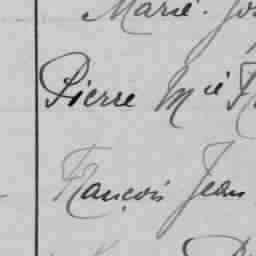 Marie. Jo
Pierre Mie F
François Jean